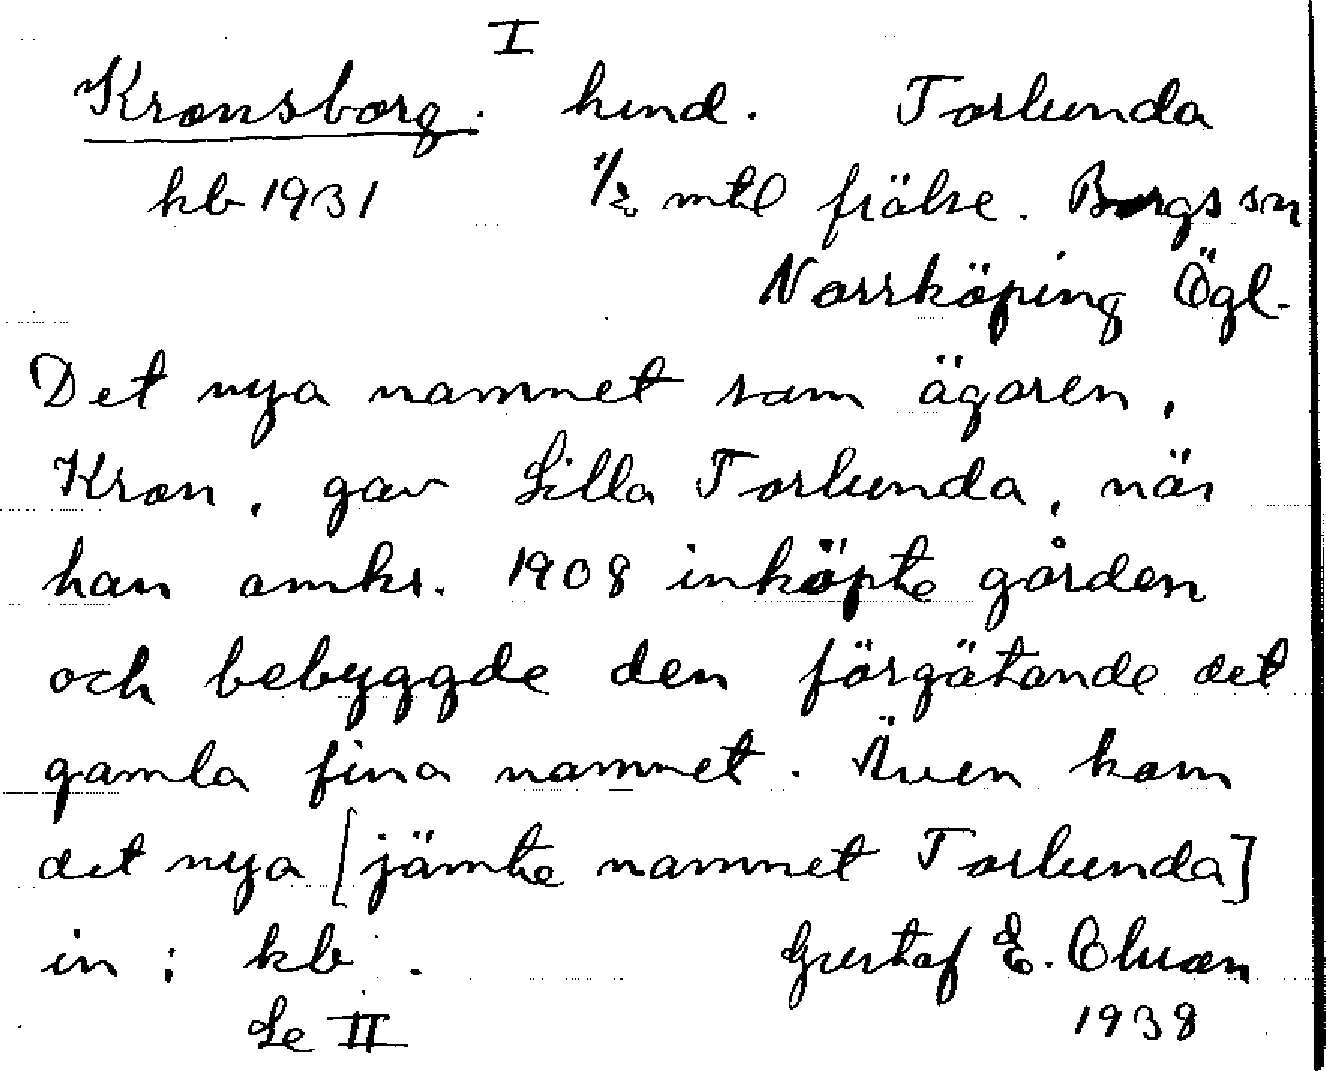 I
Kronsborg. hmd. Torlunda
kb 1931 1/2 mtl frälse. Borgs sn
Norrköping Ögl.
Det nya namnet som ägaren,
Kron, gav Lilla Torlunda, när
han omkr. 1908 inköpte gården
och bebyggde den förgätande det
gamla fina namnet. Även kom
det nya [jämte namnet Torlunda]
in i kb. Gustaf E. Olsson
Se II 1938